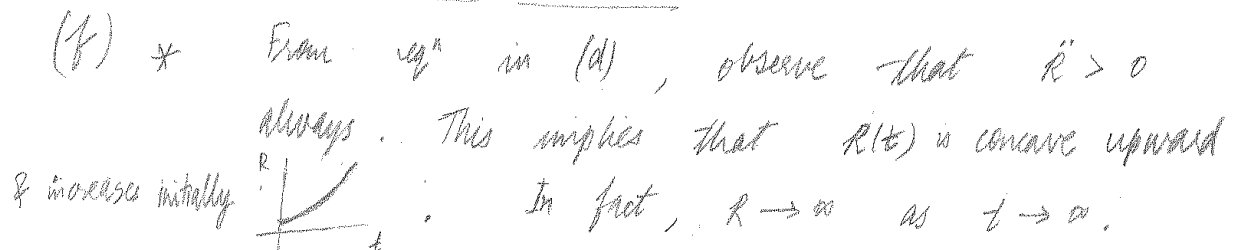 (f) * From eqⁿ in (d), observe that R̈ > 0
always. This implies that R(t) is concave upward
& increases initially R t. In fact, R → ∞ as t → ∞.